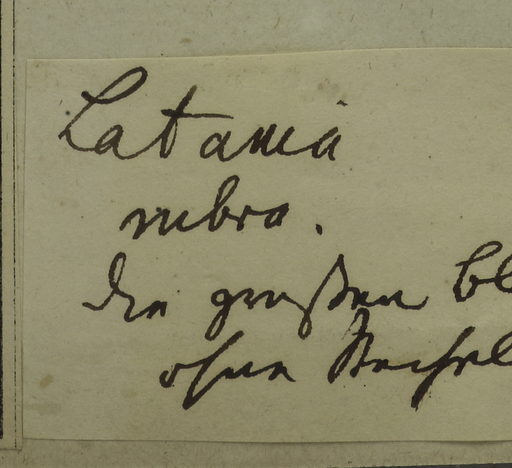 Latania
rubra.
die großen Bl
ohne Stachel